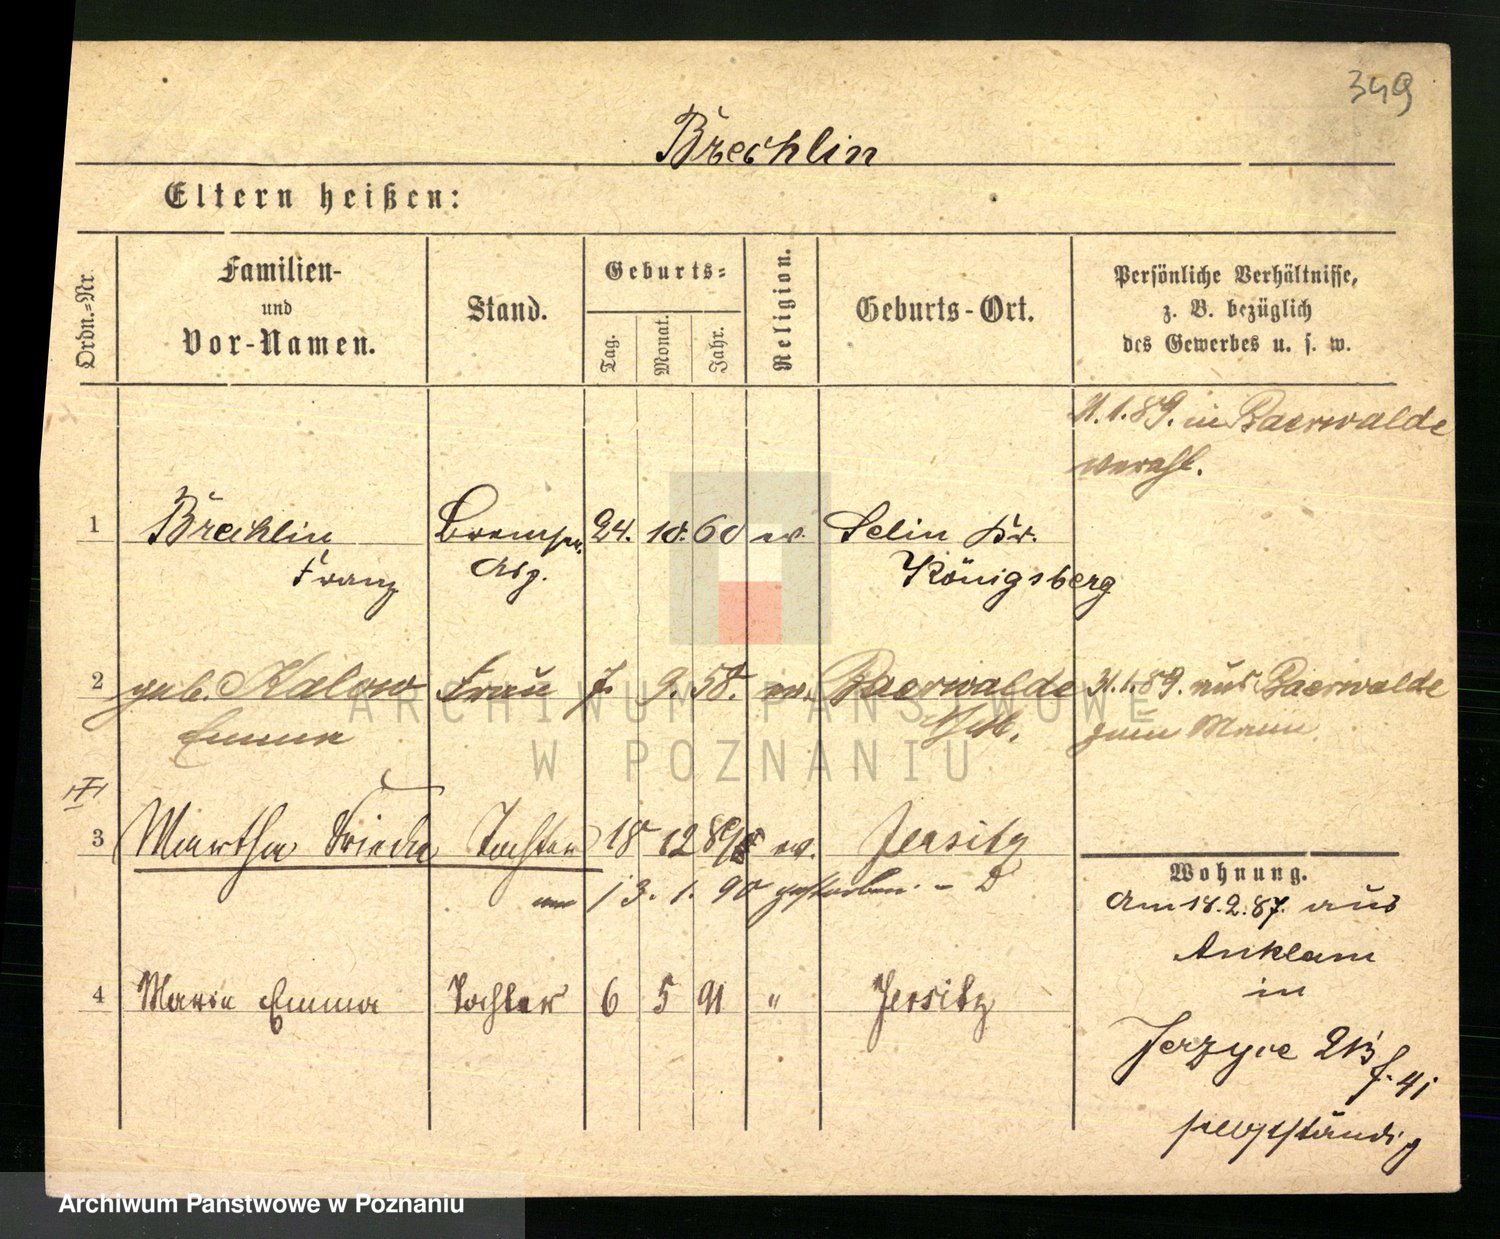 349
Brechlin
Eltern heißen:
Ordn.-Nr.
Familien-
und
Vor-Namen.
Stand.
Geburts-
Tag.
Monat.
Jahr.
Religion.
Geburts-Ort.
Persönliche Verhältnisse,
z. B. bezüglich
des Gewerbes u. s. w.
.1.89. in Baerwalde
verehl.
1 Brechlin Bremser 24. 10. 60 ev. Selin Kr.
Franz Asp. Königsberg
2 geb. Kalow Frau 7. 9. 58. ev. Baerwalde 31.1.89. aus Baerwalde
Emma N/M. zum Mann.
3 Martha Frieda Tochter 18 12 89 ev. Jersitz
am 13. 1. 90 gestorben. - D
Wohnung.
Am 18.2.87. aus
Anklam
in
4 Marie Emma Tochter 6 5 91 " Jersitz
Jerzyce 213
f. 41
selbstständig
ARCHIWUM PAŃSTWOWE
W POZNANIU
Archiwum Państwowe w Poznaniu